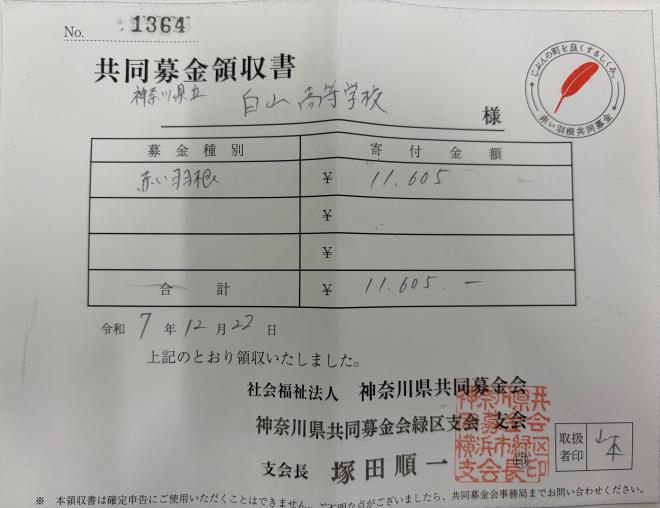 No. 1364
共同募金領収書
じぶんの町を良くするしくみ。
赤い羽根共同募金
神奈川県立 白山高等学校 様
募金種別 寄付金額
赤い羽根 ¥ 11.605
¥
¥
合計 ¥ 11.605.ー
令和 7 年 12 月 22 日
上記のとおり領収いたしました。
社会福祉法人 神奈川県共同募金会
神奈川県共同募金会緑区支会 支会
支会長 塚田順一
神奈川県共
募金会
横浜市緑区
支会長印
取扱者印 山本
※ 本領収書は確定申告にご使用いただくことはできません。ご不明な点がございましたら、共同募金会事務局までお問い合わせください。